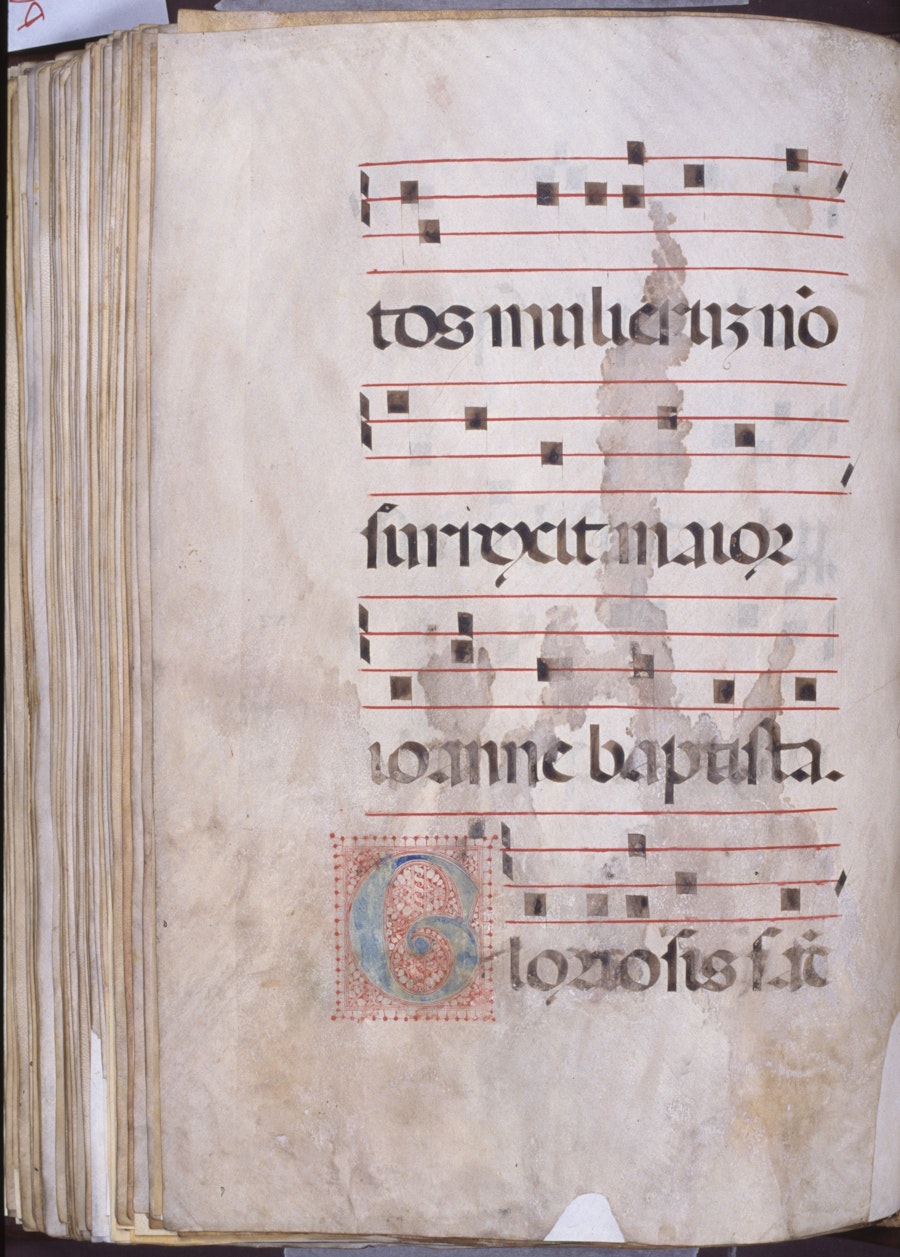 tos mulieruꝫ nõ
surrexit maior
ioanne baptista.
Gloriosis